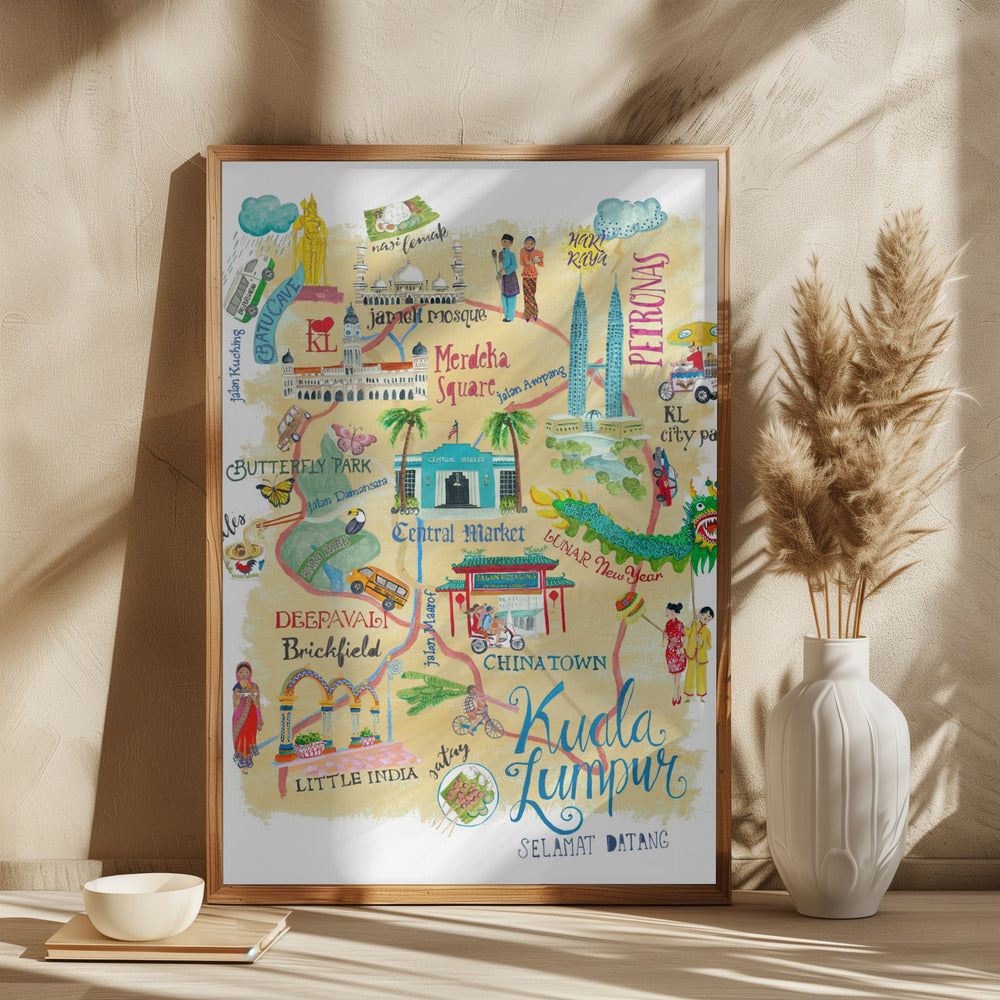 nasi lemak
HARI
RAYA
BATU CAVE
jamek mosque
PETRONAS
I
KL
jalan Kuching
Merdeka
Square
jalan Ampang
KL
city pa
BUTTERFLY PARK
CENTRAL MARKET
jalan Damansara
les
Central Market
BIRD PARK
LUNAR New Year
JALAN PETALING
DEEPAVALI
Brickfield
CHINATOWN
LITTLE INDIA
satay
Kuala
Lumpur
SELAMAT DATANG